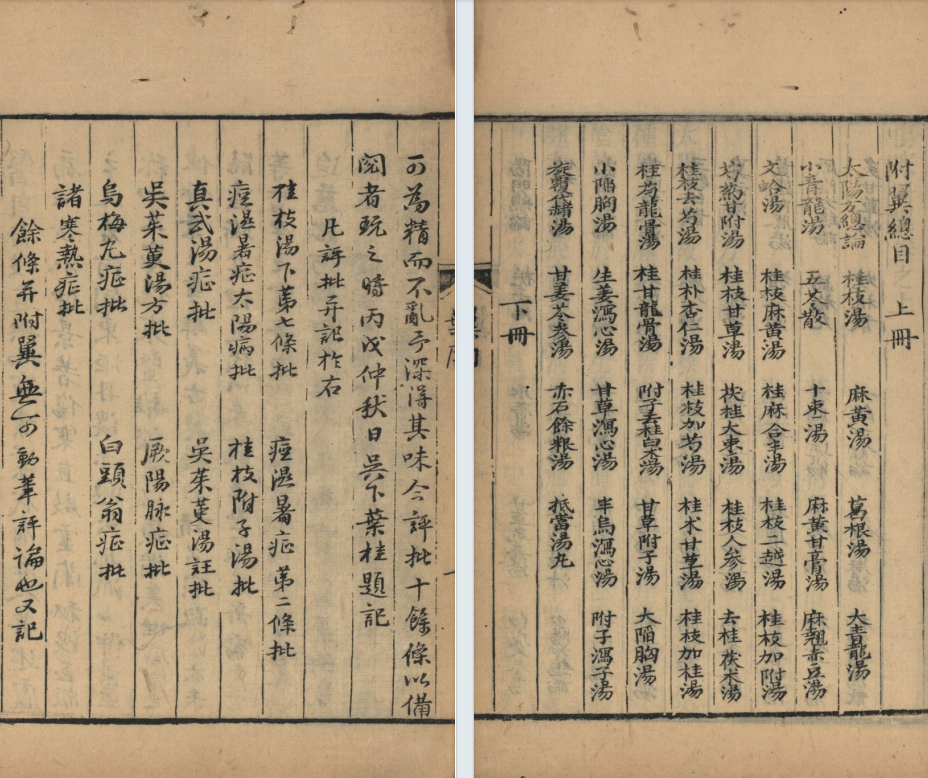 附翼總目　上冊
太陽方總論　桂枝湯　麻黃湯　葛根湯　大青龍湯
小青龍湯　五苓散　十棗湯　麻黃甘膏湯　麻翹赤豆湯
文蛤湯　桂枝麻黃湯　桂麻合半湯　桂枝二越湯　桂枝加附湯
芍药甘附湯　桂枝甘草湯　茯桂大棗湯　桂枝人參湯　去桂茯朮湯
桂枝去芍湯　桂朴杏仁湯　桂枝加芍湯　桂朮甘草湯　桂枝加桂湯
桂芍龍骨湯　桂甘龍骨湯　附子去桂白朮湯　甘草附子湯　大陷胸湯
小陷胸湯　生姜瀉心湯　甘草瀉心湯　半烏瀉心湯　附子瀉子湯
旋覆代赭湯　甘姜苓湯　赤石餘粮湯　抵當湯丸
下冊
可為精而不亂予深得其味今評批十餘條以備
閱者玩之時丙戊仲秋日吳下葉桂題記
凡評批弁記於右
桂枝湯下第七條批　痙濕暑症第二條批
痙濕暑症太陽病批　桂枝附子湯批
真武湯症批　吳茱萸湯註批
吳茱萸湯方批　厥陽脉症批
烏梅丸症批　白頭翁症批
諸寒熱症批
餘條并附翼無可動筆評論也又記